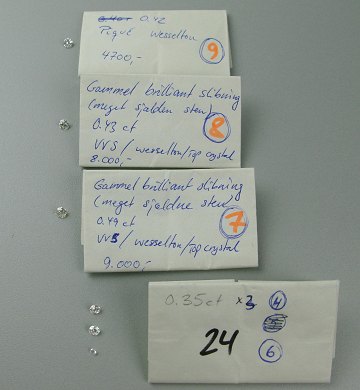 0.42
Piqué wesselton
4700,-
9
Gammel brilliant slibning
(meget sjælden sten)
0.43 ct
VVS / wesselton/Top crystal
8.000,-
8
Gammel brilliant slibning
(meget sjældne sten)
0.49 ct
VVS / wesselton/Top crystal
9.000,-
7
0.35ct x3 4
24
6